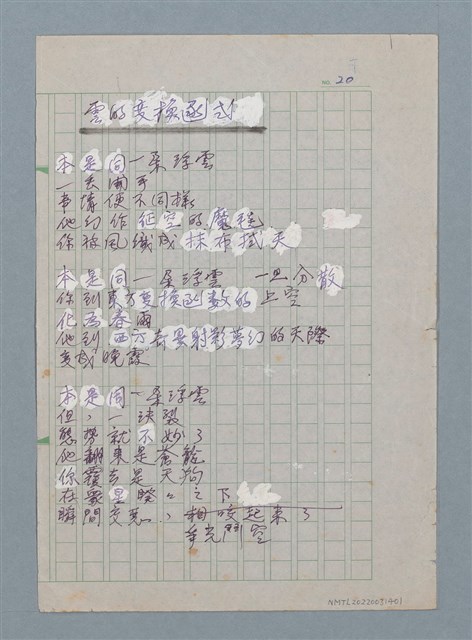 NO. 20
雲的变換函式
本是同一朵浮雲
一丟開手
事情便不同樣
他幻作征空的魔程
你被風織成抹布拭天
本是同一朵浮雲 一旦分散
你到東方变換函数的上空
化為春雨
他到西方奇景射影夢幻的天際
变成晚霞
本是同一朵浮雲
但，一決裂
態勢就不妙了
他翻來是蒼龍
你覆去是天狗
在眾星睽々之下
瞬間交惡，相咬起来了
爭光鬥空
NMTL20220031401